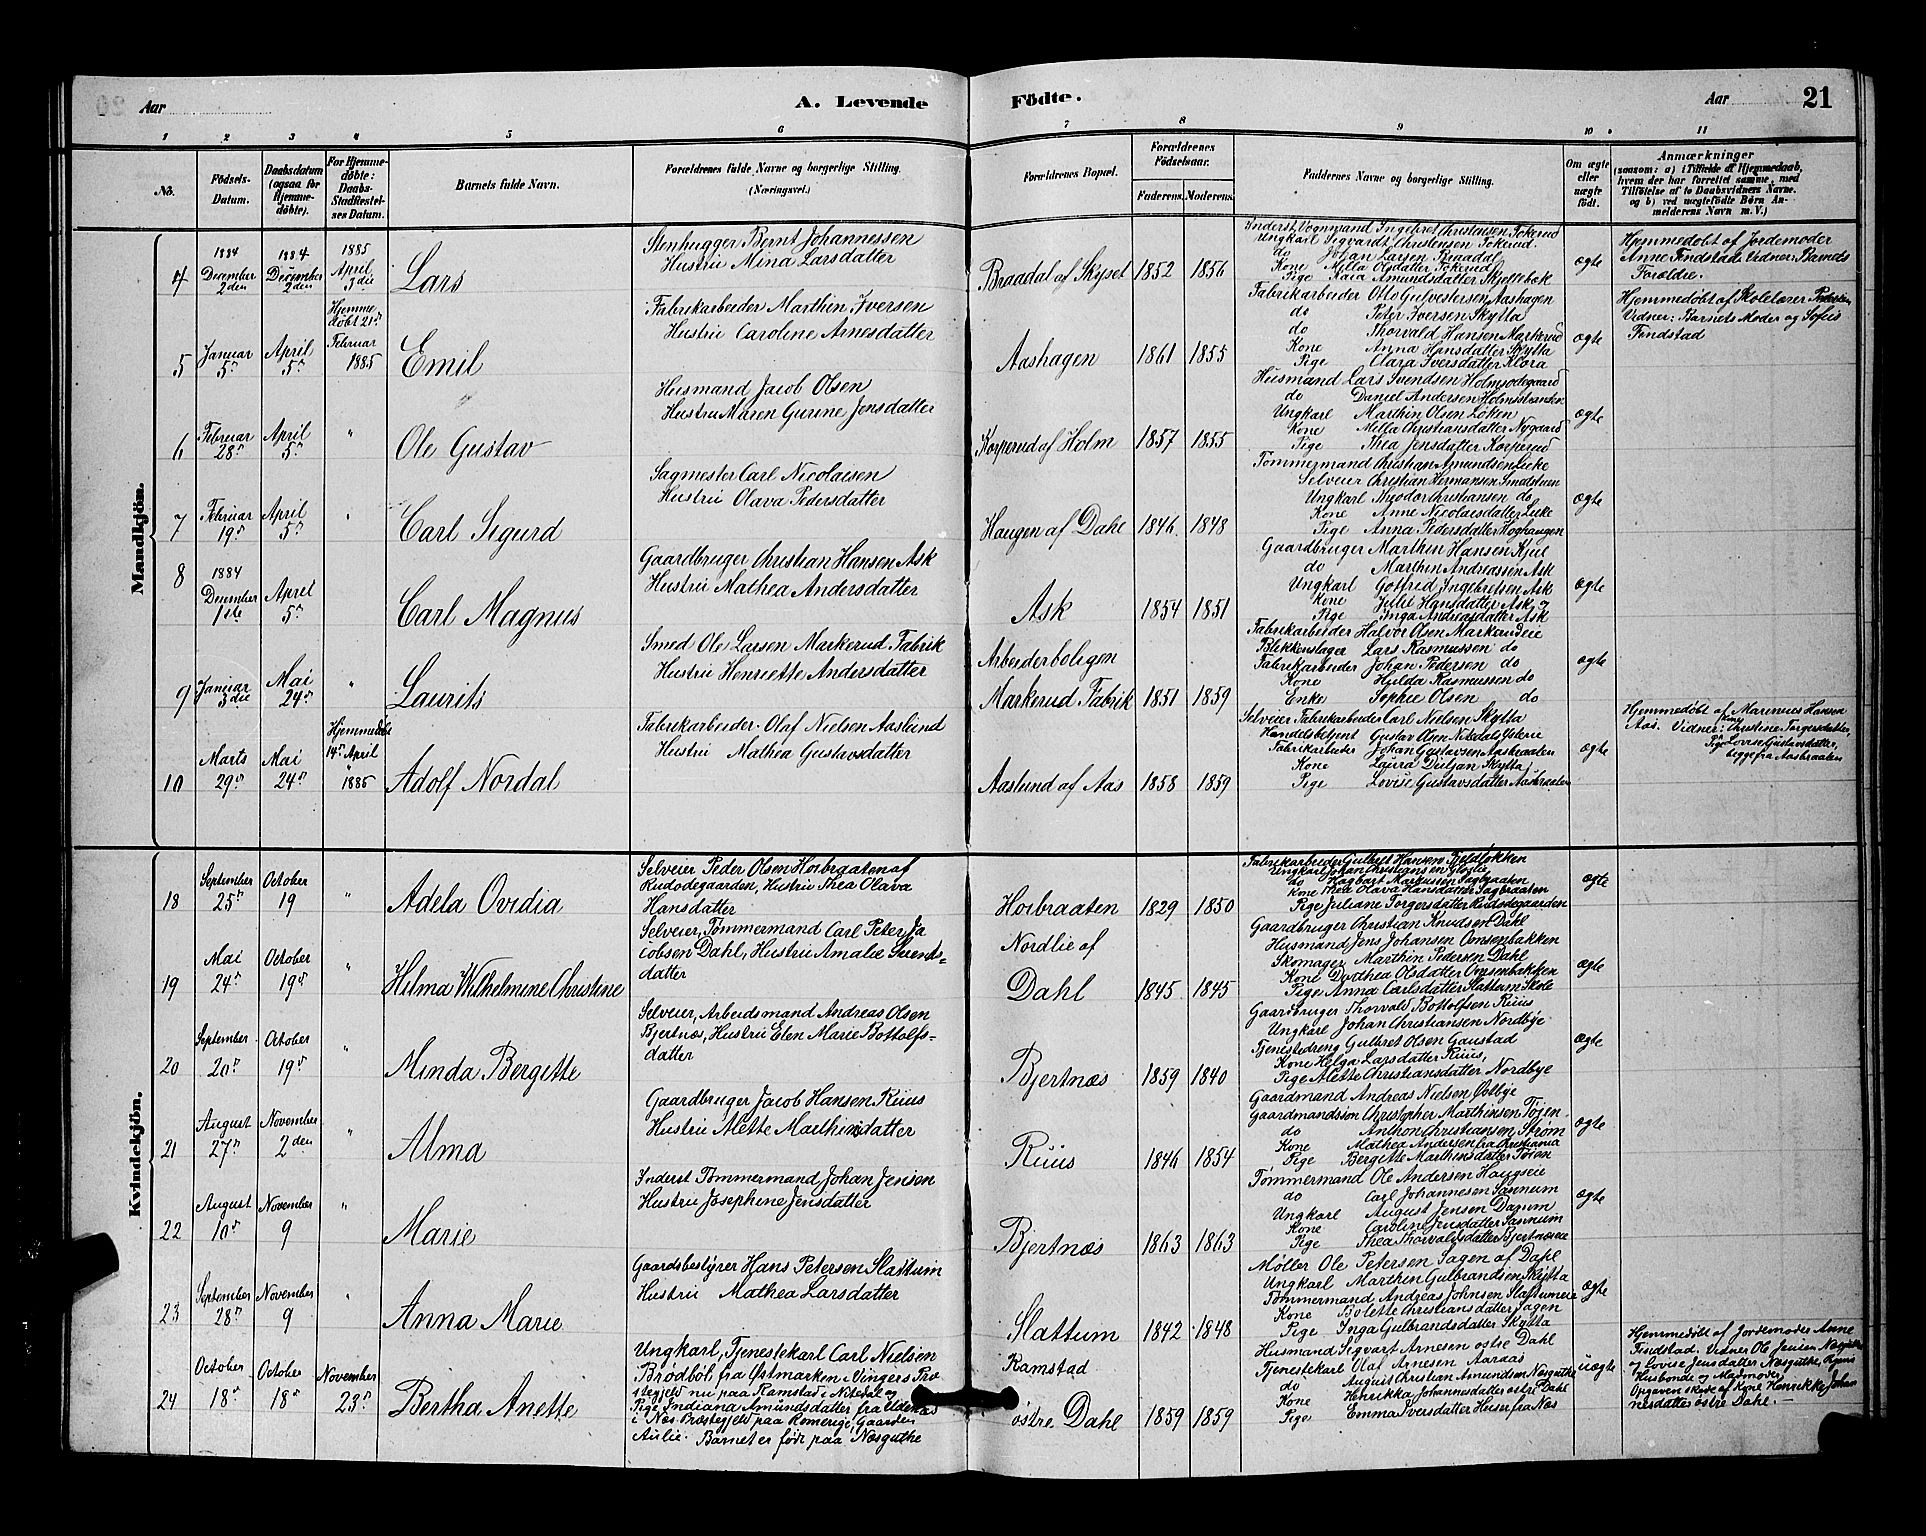 Aar
A. Levende Födte.
Aar
21
1 2 3 4 5 6 7 8 9 10 11
No.
Födsels-Datum.
Daabsdatum (ogsaa for Hjemme-döbte).
For Hjemme-döbte: Daabs-Stadfestel-ses Datum.
Barnets fulde Navn.
Forældrenes fulde Navne og borgerlige Stilling. (Næringsvei.)
Forældrenes Bopæl.
Forældrenes Födselsaar.
Faderens. Moderens.
Faddernes Navne og borgerlige Stilling.
Om ægte eller uægte födt.
Anmærkninger
(saasom: a) i Tilfælde af Hjemmedaab, hvem der har forrettet samme, med Tilföielse af to Daabsvidners Navne. og b) ved uægtefödte Börn An-melderens Navn m. V.)
Mandkjön.
4
1884 December 2den
1884 December 2den
1885 April 3die
Lars
Stenhugger Bernt Johannessen
Hustru Mina Larsdatter
Braadal af Skyset
1852 1856
Inderst Vognmand Ingebret Christensen Tokerud
Ungkarl Sigvardt Christensen Tokerud
do Johan Larsen Braadal
Kone Milla Olsdatter Tokerud
Pige Kaia Amundsdatter Skjellebæk
ægte
Hjemmedøbt af Jordemoder
Anne Findstad. Vidner: Barnets
Forældre.
5
Januar 5n
April 5n
Hjemme døbt 21n Februar 1885
Emil
Fabrikarbeider Marthin Iversen
Hustru Caroline Arnesdatter
Aashagen
1861 1855
Fabrikarbeider Otto Gulvestersen Aashagen
do Peter Iversen Skytta
do Thorvald Hansen Markerud
Kone Anna Hansdatter Skytta
Pige Clara Iversdatter Klora
ægte
Hjemmedøbt af Skolelærer Pedersen
Vidner: Barnets Moder og Sofie
Findstad
6
Februar 28n
April 5n
"
Ole Gustav
Husmand Jacob Olsen
Hustru Maren Gurine Jensdatter
Korperud af Holm
1857 1855
Husmand Lars Svendsen Holmsødegaard
do Daniel Andersen Holmsstranden
Ungkarl Marthin Olsen Løken
Kone Milla Christiansdatter Nygaard
Pige Thea Jensdatter Korperud
ægte
7
Februar 19n
April 5n
"
Carl Sigurd
Sagmester Carl Nicolaisen
Hustru Olava Pedersdatter
Haugen af Dahl
1846 1848
Tømmermand Christian Amundsen Lieke
Selveier Christian Hermansen Smedstuen
Ungkarl Theodor Christiansen do
Kone Anne Nicolaisdatter Lieke
Pige Anna Pedersdatter Hoghaugen
ægte
8
1884 December 1ste
April 5n
Carl Magnus
Gaardbruger Christian Hansen Ask
Hustru Mathea Andersdatter
Ask
1854 1851
Gaardbruger Marthin Hansen Kjul
do Marthin Andreassen Ask
Ungkarl Gotfred Ingebretsen Ask
Kone Julie Hansdatter Ask og
Pige Inga Andreasdatter Ask
ægte
9
Januar 3die
Mai 24n
"
Laurits
Smed Ole Larsen Markerud Fabrik
Hustru Henriette Andersdatter
Arbeiderboligen
Markerud Fabrik
1851 1859
Fabrikarbeider Halvor Olsen Markerudeie
Blikkenslager Lars Rasmussen do
Fabrikarbeider Johan Pedersen do
Kone Hulda Rasmussen do
Enke Sophie Olsen do
ægte
10
Marts 29n
Mai 24n
Hjemmedøbt 14n April 1885
Adolf Nordal
Fabrikarbeider Olaf Nielsen Aaslund
Hustru Mathea Gustavsdatter
Aaslund af Aas
1858 1859
Selveier Fabrikarbeider Carl Nielsen Skytta
Handelsbetjent Gustav Olsen Nitedals Ysterie
Fabrikarbeider Johan Gustavsen Aasbraaten
Kone Laura Skytta
Pige Lovise Gustavsdatter Aasbraaten
ægte
Hjemmedøbt af Marinius Hansen
Aas. Vidner: Kone Christine Torgersdatter,
Pige Lovise Gustavsdatter,
begge fra Aasbraaten
Kvindekjön.
18
September 25n
October 19
"
Adela Ovidia
Selveier Peder Olsen Hoibraaten af
Rudødegaarden, Hustru Thea Olava
Hansdatter
Hoibraaten
1829 1850
Fabrikarbeider Gulbret Hansen Fjeldløkken
Ungkarl Johan Christiansen Glogle
do Hagbart Markussen Sagbraaten
Kone Thea Olava Hansdatter Sagbraaten
Pige Juliane Torgersdatter Rudsødegaarden
ægte
19
Mai 24n
October 19n
"
Hilma Wilhelmine Christine
Selveier, Tømmermand Carl Peter Ja
cobsen Dahl, Hustru Amalie Svends=
datter
Nordlie af
Dahl
1845 1845
Gaardbruger Christian Knudsen Dahl
Husmand Jens Johansen Ovnsenbakken
Skomager Marthin Pedersen Dahl
Kone Dorthea Olsdatter Ovnsenbakken
Pige Anna Carlsdatter Slattum Skole
ægte
20
September 20n
October 19n
"
Minda Bergitte
Selveier, Arbeidsmand Andreas Olsen
Bjertnæs, Hustru Elen Marie Bottolfs-
datter
Bjertnæs
1859 1840
Gaardbruger Thorvald Bottolfsen Ruus
Ungkarl Johan Christiansen Nordbye
Tjenestedreng Gulbret Olsen Gaustad
Kone Helga Larsdatter Ruus,
Pige Alette Christiansdatter Nordbye
ægte
21
August 27n
November 2den
"
Alma
Gaardbruger Jacob Hansen Ruus
Hustru Alette Marthinsdatter
Ruus
1846 1854
Gaardmand Andreas Nielsen Østbye
Gaardmandssøn Christopher Marthinsen Tøien.
do Anthon Christiansen Strøm
Kone Mathea Andersen fra Christiania
Pige Bergitte Marthinsdatter Tøien
ægte
22
August 10n
November 9
"
Marie
Inderst Tømmermand Johan Jensen
Hustru Josephine Jensdatter
Bjertnæs
1863 1863
Tømmermand Ole Andersen Haugseie
do Carl Johannesen Sannum
Ungkarl August Jensen Dasum
Kone Caroline Jensdatter Sannum
Pige Thea Thorvalsdatter Bjertnæseie
ægte
23
September 28n
November 9
"
Anna Marie
Gaardsbestyrer Hans Petersen Slattum
Hustru Mathea Larsdatter
Slattum
1842 1848
Møller Ole Petersen Sagen af Dahl
Ungkarl Marthin Gulbrandsen Skytta
Tømmermand Andreas Johnsen Slattumeie
Kone Bolette Christiansdatter Sagen
Pige Inga Gulbrandsdatter Skytta
ægte
24
October 18n
October 18n
November 23n
Bertha Anette
Ungkarl, Tjenestekarl Carl Nielsen
Brødbøl fra Østmarken i Vingers Præ
stegjeld nu paa Ramstad i Nitedal og
Pige Indiana Amundsdatter fra Udenæs
i Næs Præstegjeld paa Romerige, Gaarden
Aulie. Barnet er født paa Næsguthe
Ramstad
østre Dahl
1859 1859
Husmand Sigvart Arnesen østre Dahl
Tjenestekarl Olaf Arnesen Aaraas
do August Christian Amundsen Næsguthe
Kone Henrikka Johannesdatter østre Dahl
Pige Emma Iversdatter Huser fra Næs
uægte
Hjemmedøbt af Jordemoder Anne
Findstad. Vidner Ole Jensen Næsguthe
og Lovise Jensdatter Næsguthe,
Husbonde og Madmoder
Opgaven skede af Kone Henrikke Johan
nesdatter østre Dahl.